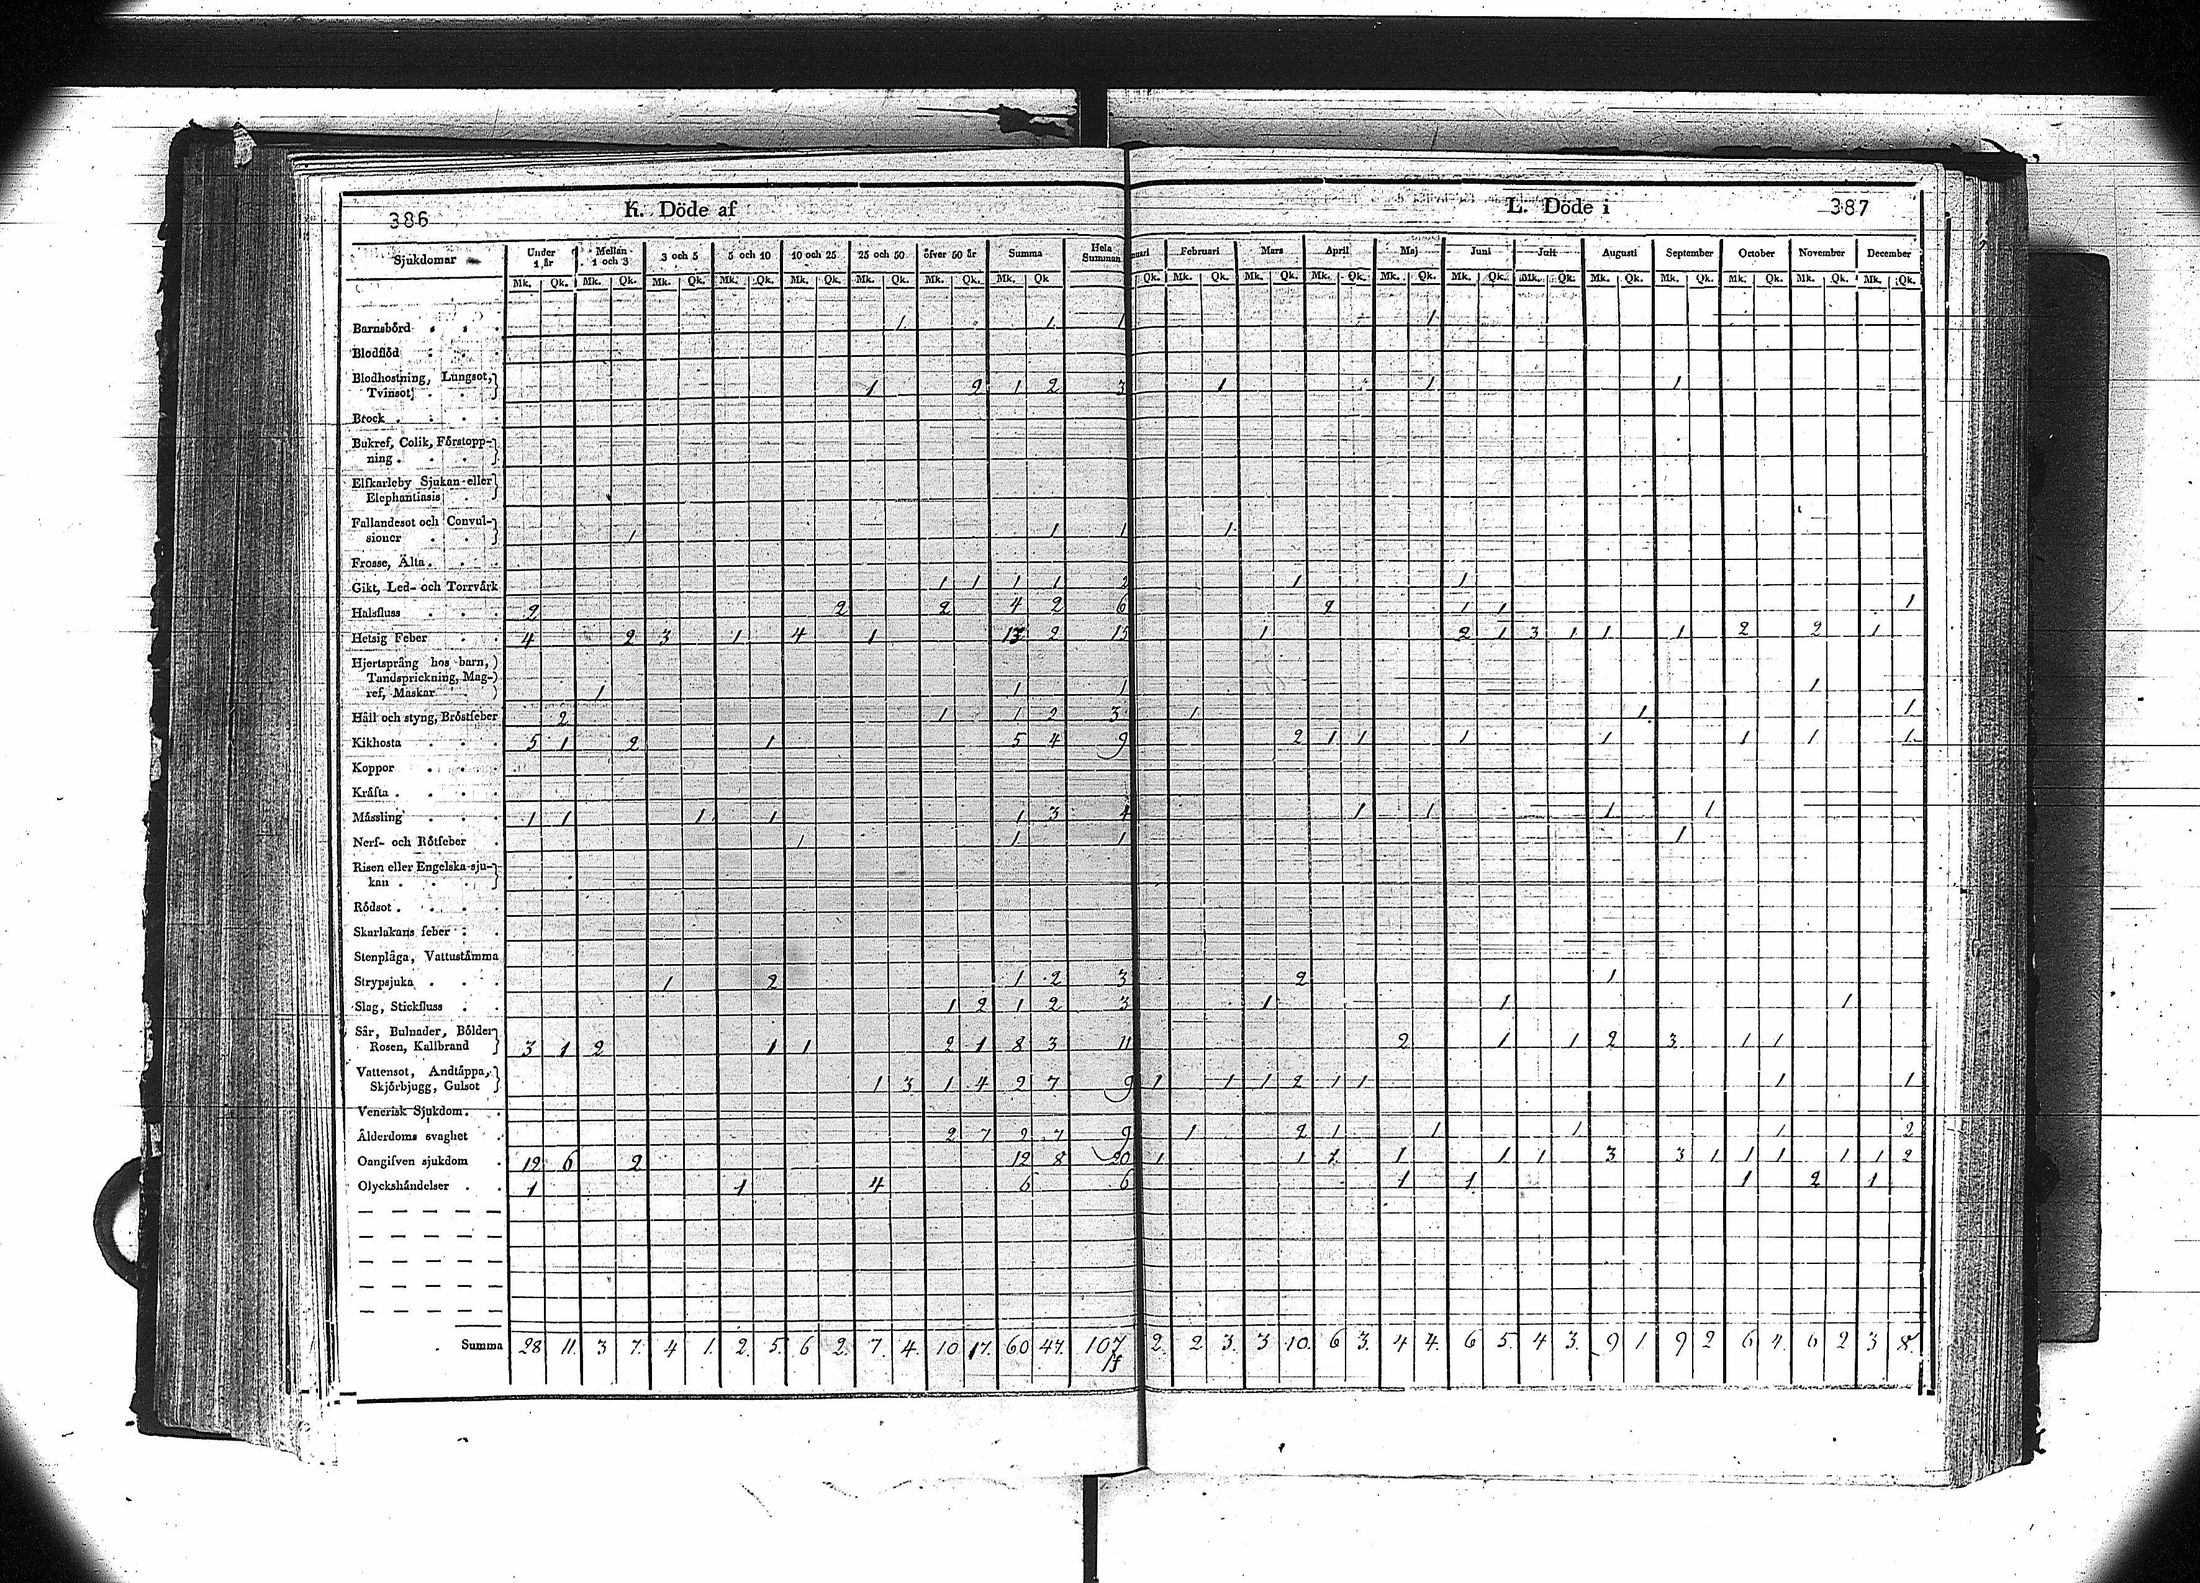 386 K. Döde af L. Döde i 387
Sjukdomar Under 1 år Mellan 1 och 3 3 och 5 5 och 10 10 och 25 25 och 50 öfver 50 år Summa Hela Summan nuari Februari Mars April Maj Juni Juli Augusti September October November December
Mk. Qk. Mk. Qk. Mk. Qk. Mk. Qk. Mk. Qk. Mk. Qk. Mk. Qk. Mk. Qk Qk. Mk. Qk. Mk. Qk. Mk. Qk. Mk. Qk. Mk. Qk. Mk. Qk. Mk. Qk. Mk. Qk. Mk. Qk. Mk. Qk. Mk. Qk.
Barnsbörd 1 1 1 1
Blodflöd
Blodhostning, Lungsot,
Tvinsot 1 2 1 2 3 1 1 1
Brock
Bukref, Colik, Förstopp-
ning
Elfkarleby Sjukan eller
Elephantiasis
Fallandesot och Convul-
sioner 1 1 1 1
Frosse, Älta
Gikt, Led- och Torrvärk 1 1 1 1 2 1 1
Halsfluss 2 2 2 4 2 6 2 1 1 1
Hetsig Feber 4 2 3 1 4 1 13 2 15 1 2 1 3 1 1 1 2 2 1
Hjertsprång hos barn,
Tandsprickning, Mag-
ref, Maskar 1 1 1 1
Håll och styng, Bröstfeber 2 1 1 2 3 1 1 1
Kikhosta 5 1 2 1 5 4 9 2 1 1 1 1 1 1 1
Koppor
Kräfta
Mässling 1 1 1 1 1 3 4 1 1 1 1
Nerf- och Rötfeber 1 1 1 1
Risen eller Engelska sju-
kan
Rödsot
Skarlakans feber
Stenplåga, Vattustämma
Strypsjuka 1 2 1 2 3 2 1
Slag, Stickfluss 1 2 1 2 3 1 1 1
Sår, Bulnader, Bölder
Rosen, Kallbrand 3 1 2 1 1 2 1 8 3 11 2 1 1 2 3 1 1
Vattensot, Andtäppa,
Skjörbjugg, Gulsot 1 3 1 4 2 7 9 1 1 1 2 1 1 1 1
Venerisk Sjukdom
Ålderdoms svaghet 2 7 2 7 9 1 2 1 1 1 1 2
Oangifven sjukdom 12 6 2 12 8 20 1 1 1 1 1 1 3 3 1 1 1 1 1 2
Olyckshändelser 1 1 4 6 6 1 1 1 2 1
Summa 28 11. 3 7. 4 1. 2. 5. 6 2. 7. 4. 10 17. 60 47. 107 2. 2 3. 3 10. 6 3. 4 4. 6 5. 4 3. 9 1. 9 2 6 4. 6 2 3 8.